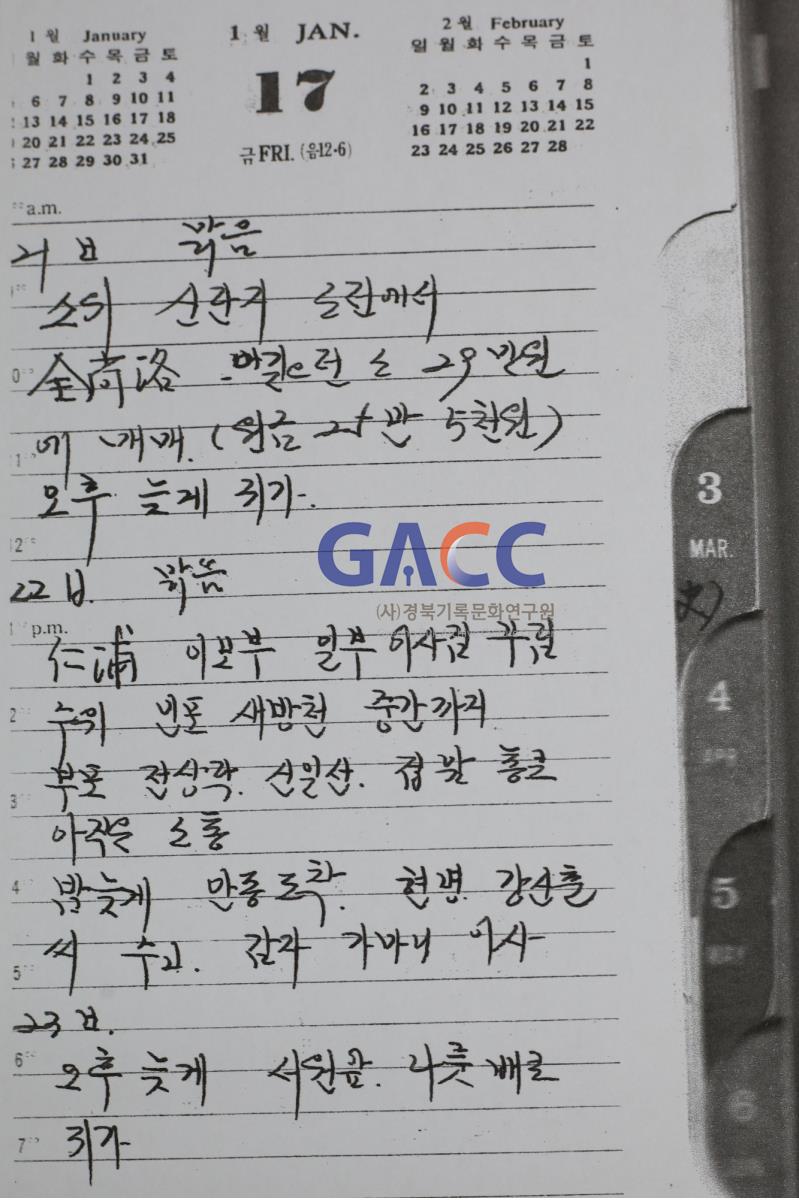 1월 January
월 화 수 목 금 토
1 2 3 4
6 7 8 9 10 11
13 14 15 16 17 18
20 21 22 23 24 25
27 28 29 30 31
1월 JAN.
17
금 FRI. (음12·6)
2월 February
일 월 화 수 목 금 토
1
2 3 4 5 6 7 8
9 10 11 12 13 14 15
16 17 18 19 20 21 22
23 24 25 26 27 28
a.m.
21日 맑음
소의 신관지
全尚洛 29만원
에 매매. (원금 만 5천원)
오후 늦게 귀가.
22日. 맑음
p.m.
仁浦 이모부 일부 이사짐 꾸림
수위 민포 새방천 중간까지
부포 전상락. 신일산. 접발 통크
아직은 소통
밤늦게 안동 도착. 현평. 강신출
씨 수고. 감자 가마니 이사
23日.
오후 늦게 서원앞. 나룻배로
귀가
GACC
(사)경북기록문화연구원
3
MAR.
4
5
6